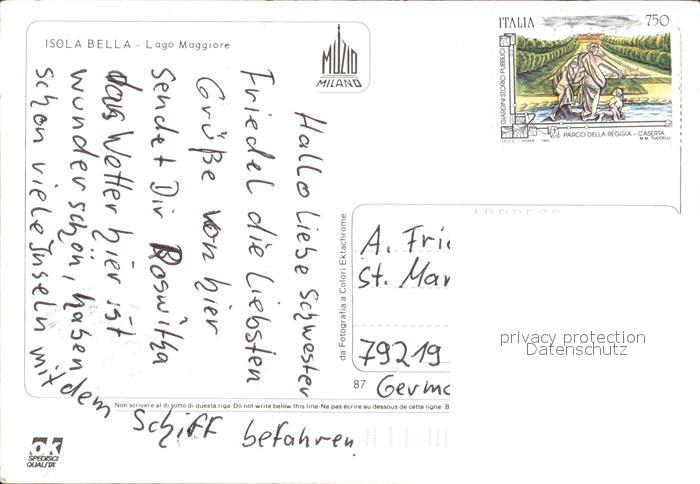 ISOLA BELLA - Lago Maggiore
MUZIO
MILANO
ITALIA 750
GIARDINI STORICI PUBBLICI
PARCO DELLA REGGIA - CASERTA
M.M. TUCCELLI
I.P.Z.S. - ROMA - 1995
Hallo Liebe Schwester
Friedel die Liebsten
Grüße von hier
Sendet Dir Roswitha
das Wetter hier ist
wunderschön, haben
schon viele Inseln mit dem
Schiff befahren.
da Fotografia a Colori Ektachrome
ADDRESS
A. Frie
St. Mar
79219
Germa
87
Non scrivere al di sotto di questa riga - Do not write below this line - Ne pas écrire au dessous de cette ligne - B
ok
SPEDISCI
QUALITA'
privacy protection
Datenschutz